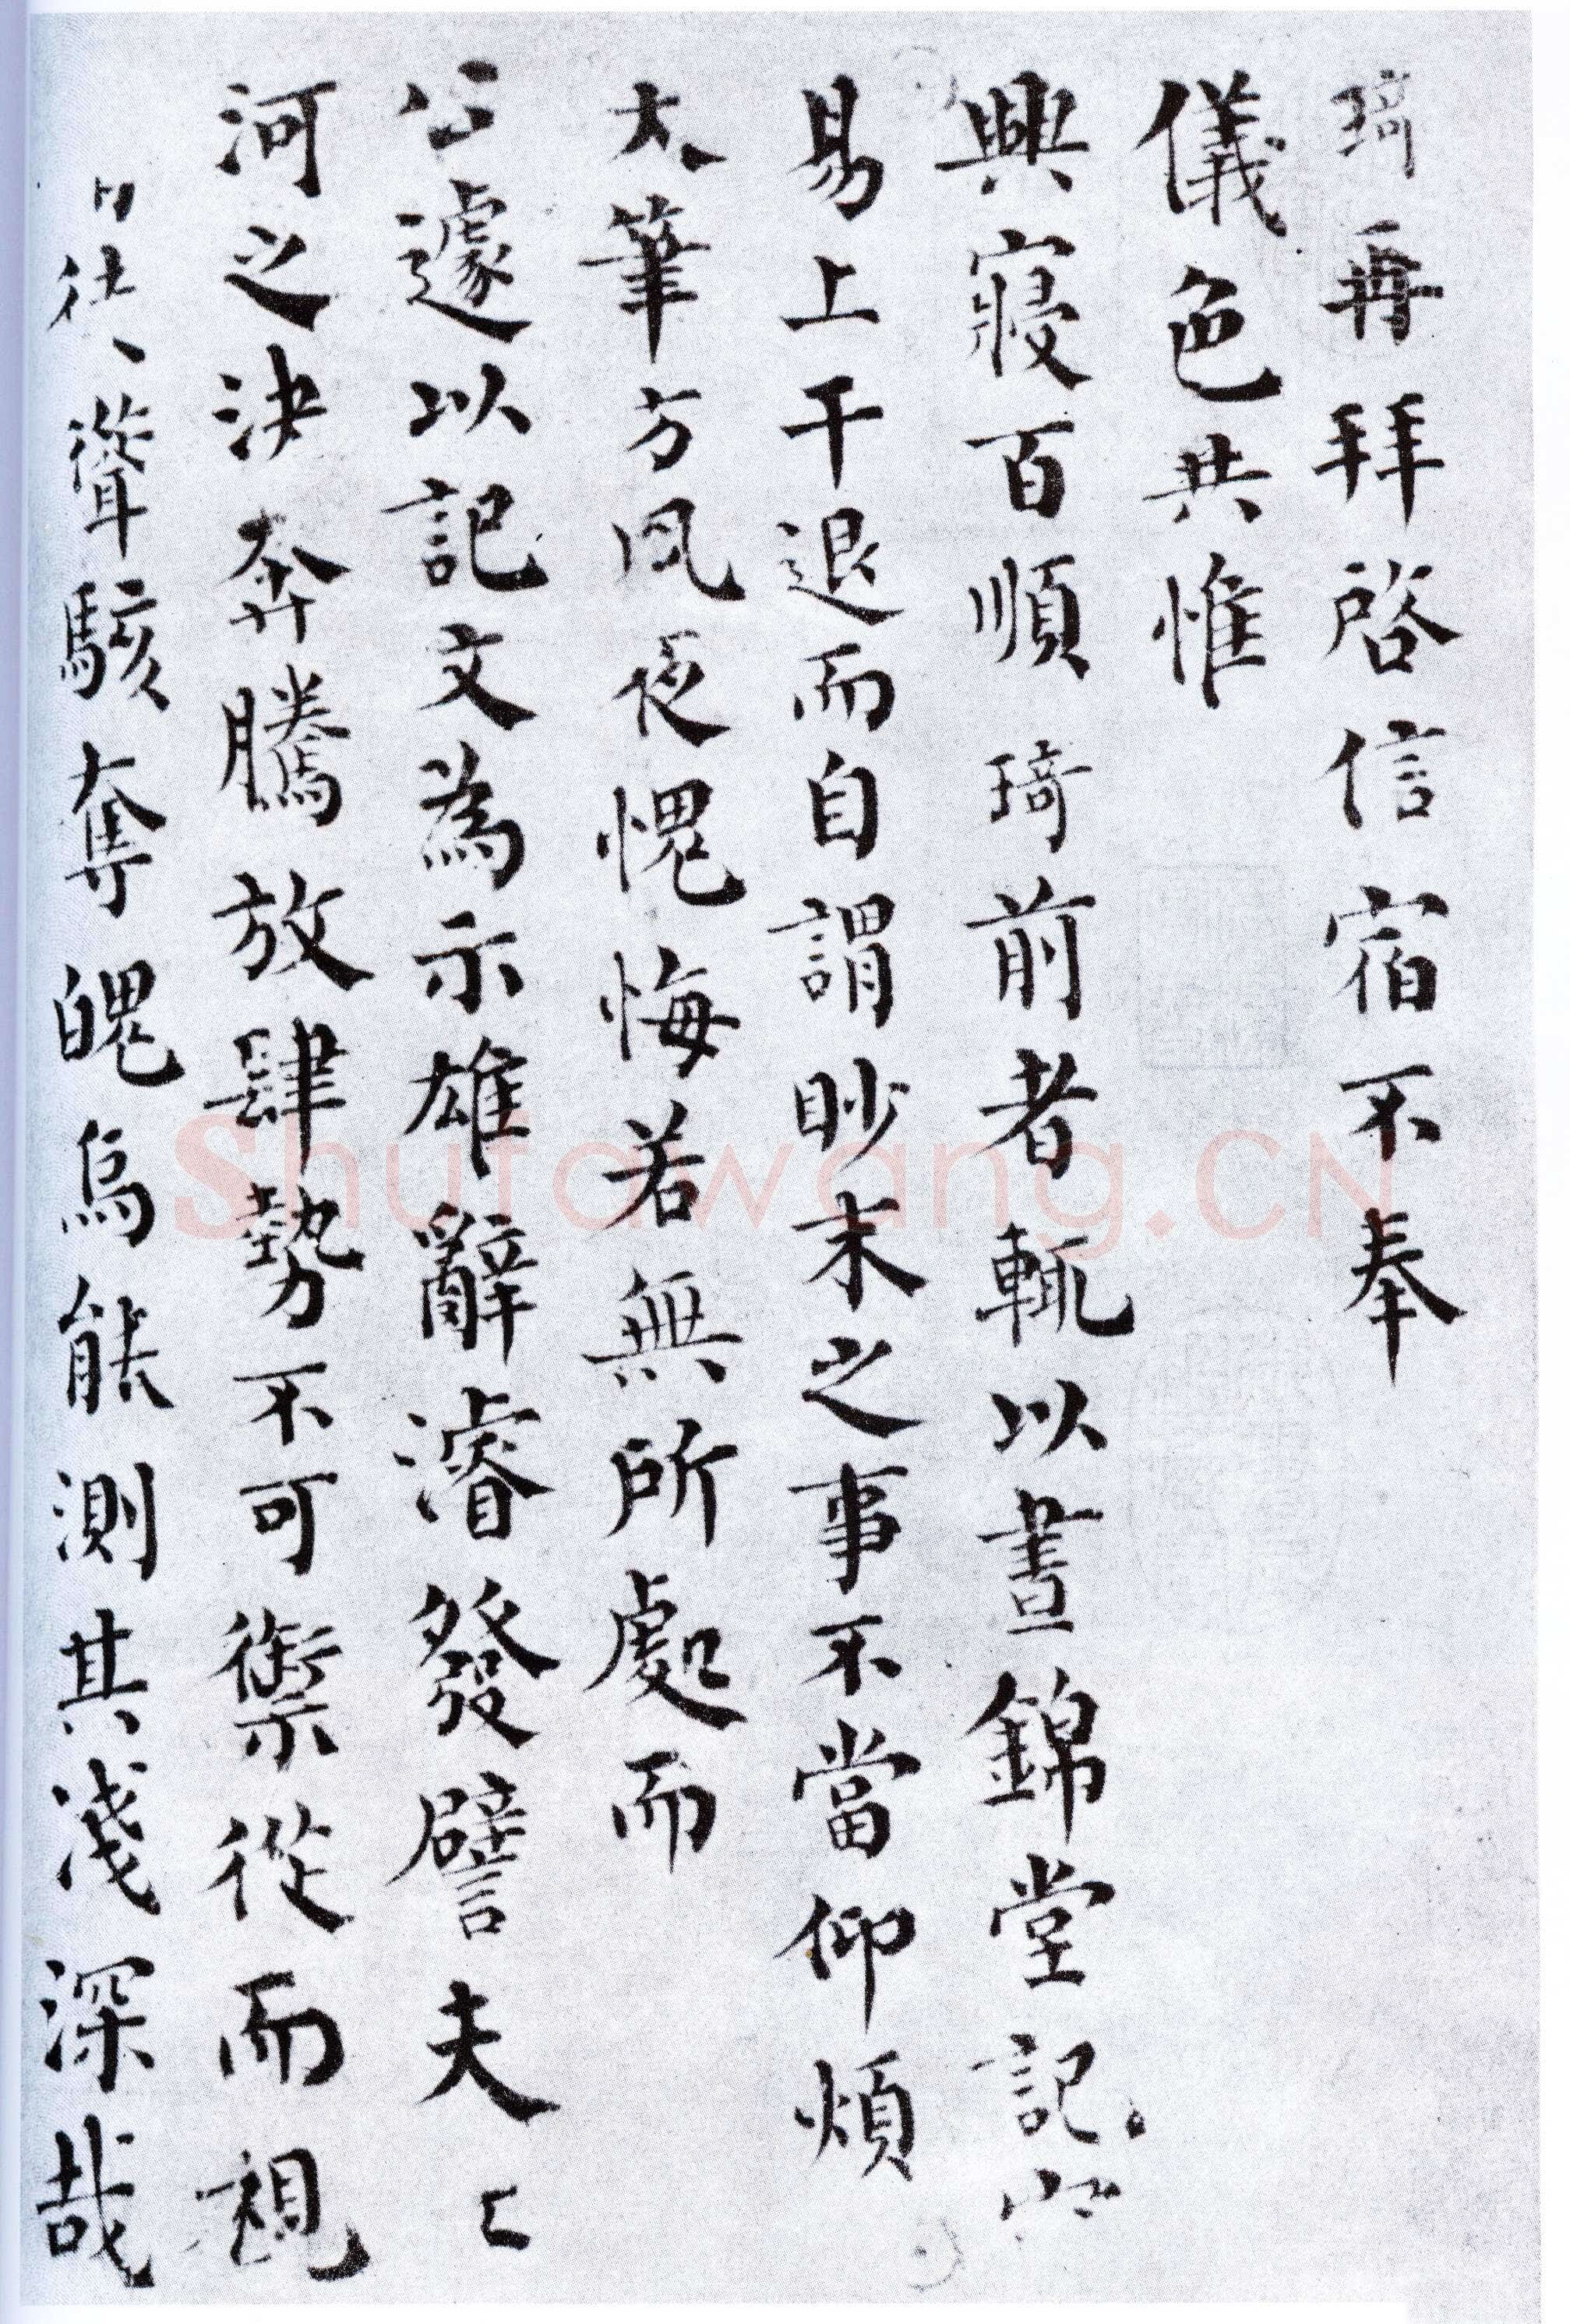 琦再拜啓信宿不奉
儀色共惟
興寢百順琦前者輒以晝錦堂記
易上干退而自謂眇末之事不當仰煩
大筆方夙夜愧悔若無所處而
公遽以記文為示雄辭濬發譬夫
河之決奔騰放肆勢不可禦從而視
徒聳駭奪魄烏能測其淺深哉
Shufawang.CN